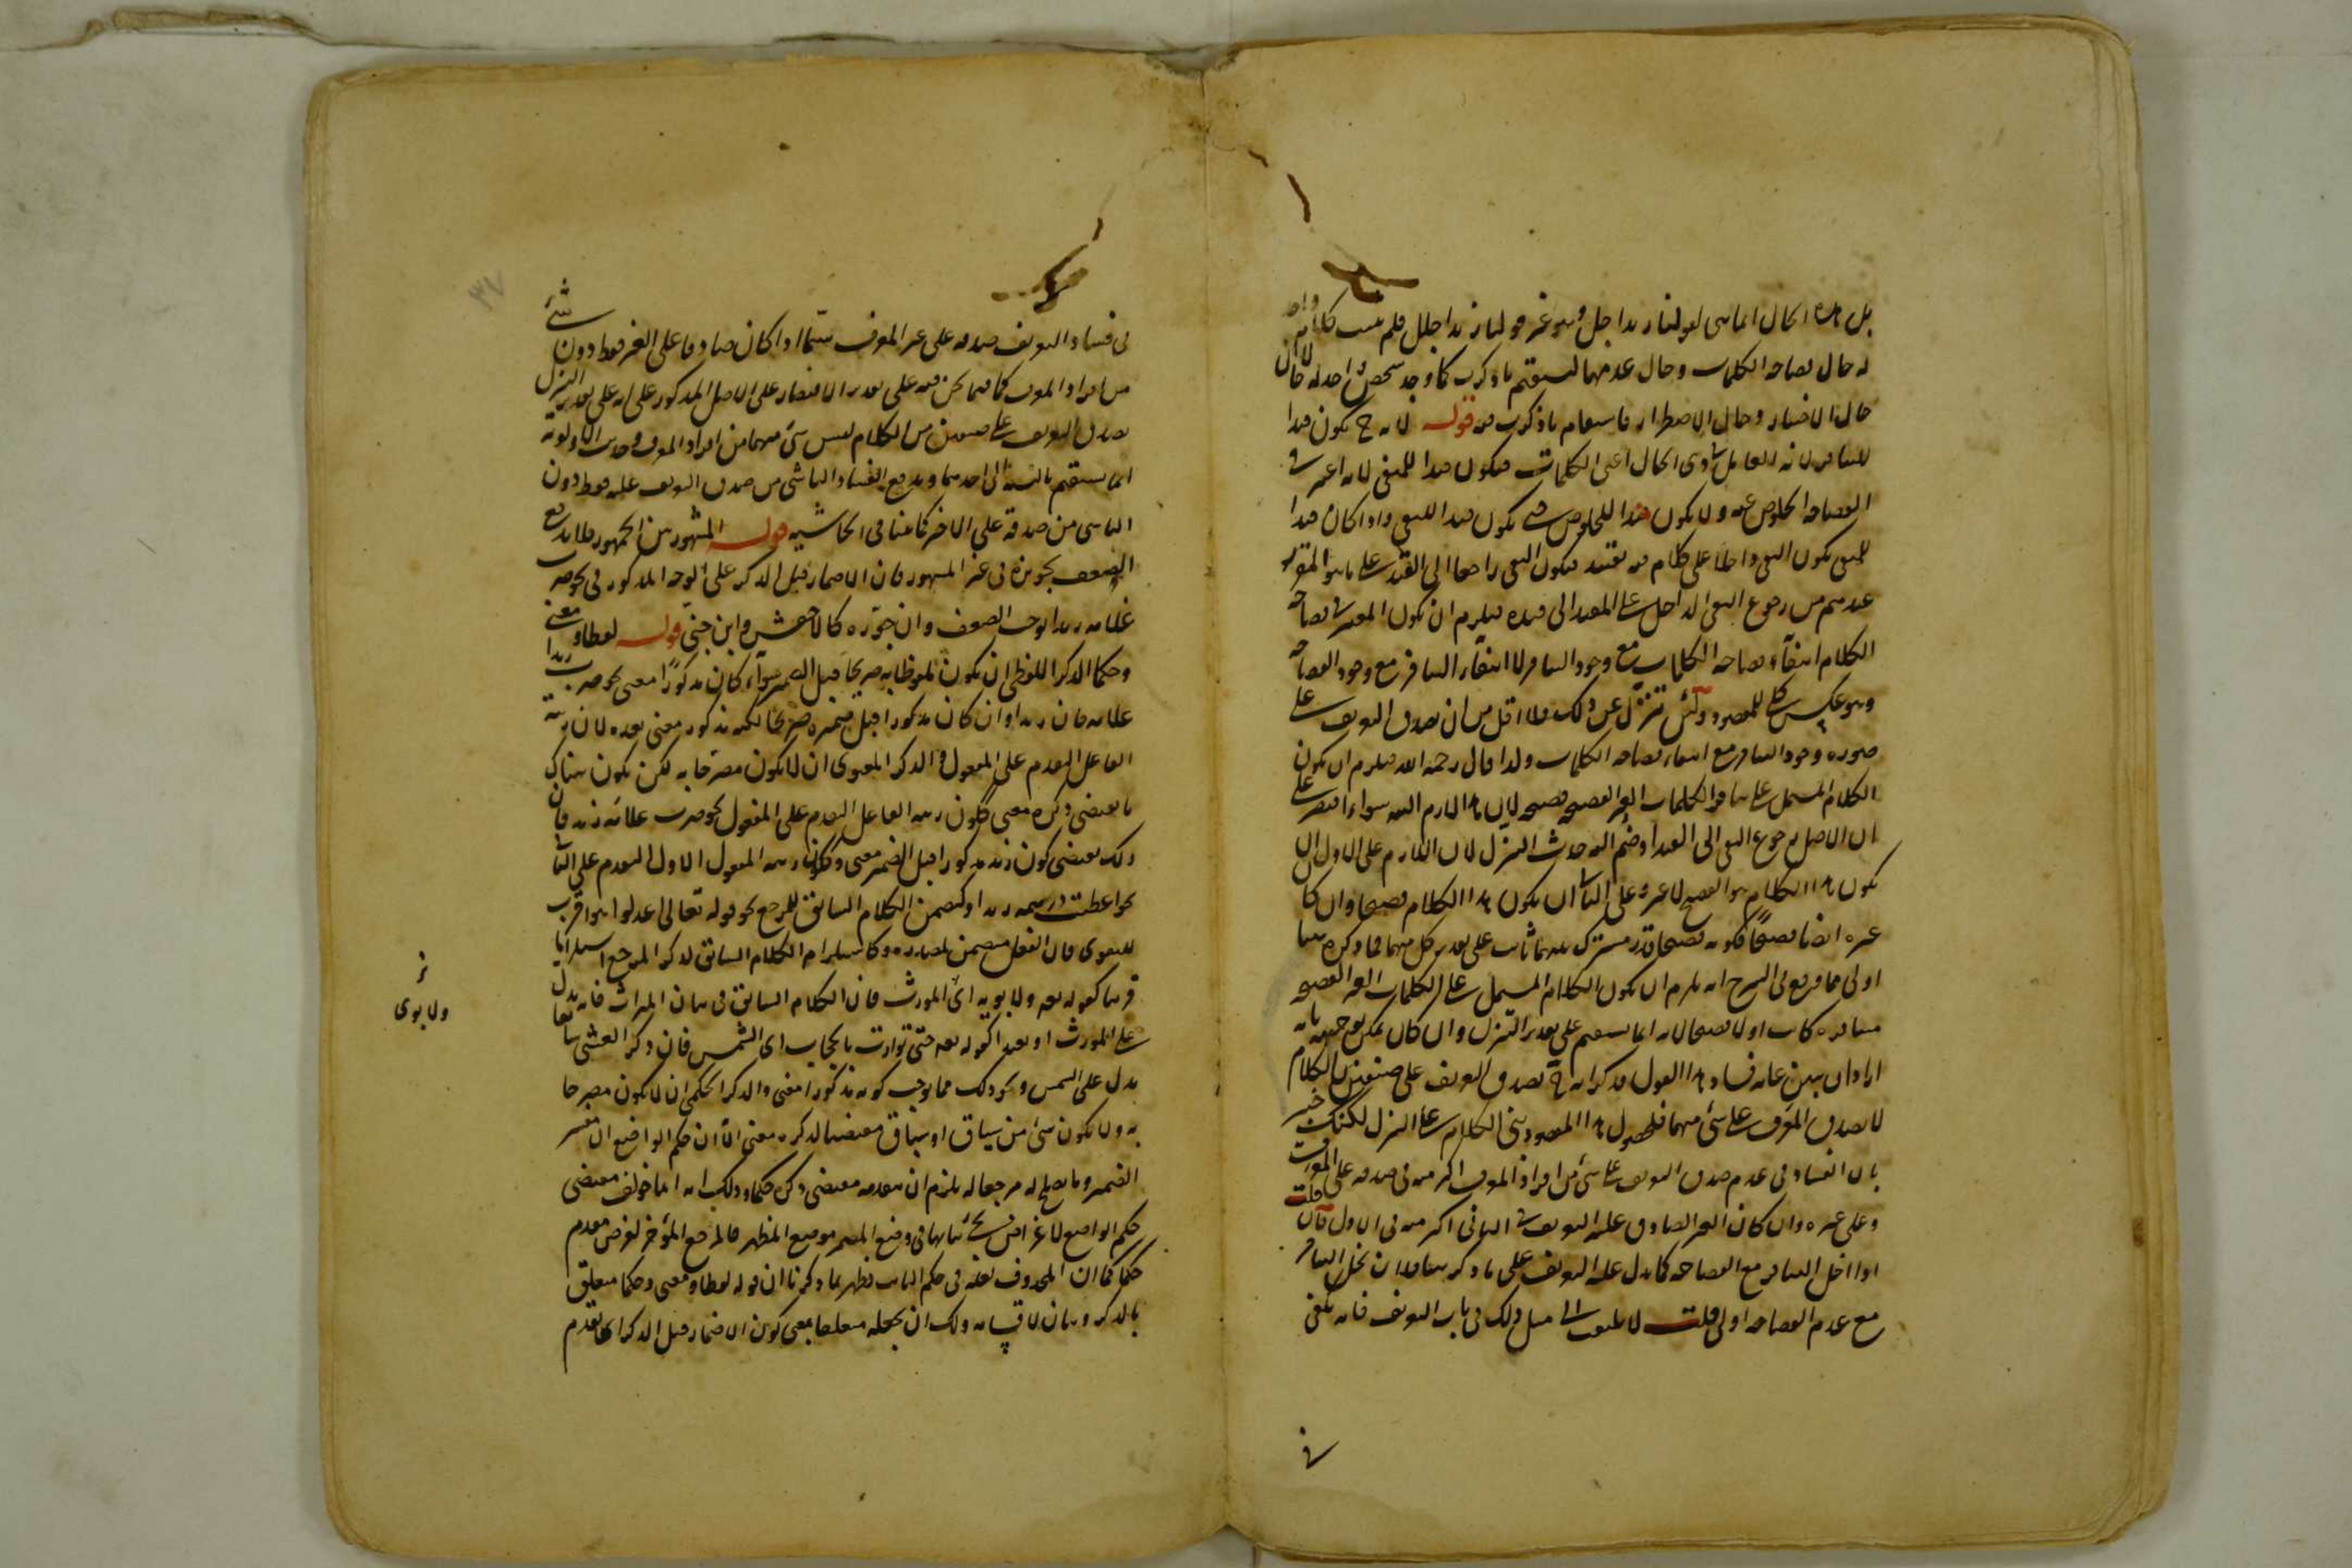 بل هذه الحال انما هي لقولنا زيد اجل وهو غير قولنا زيد اجلل فلم يثبت كلام واحد
له حال فصاحة الكلمات وحال عدمها ليستقيم ما ذكرت كما وجد شخص واحد له حالان
حال الاختيار وحال الاضطرار فاستقام ما ذكرت فيه قوله لانه ح يكون قيدا
للتنافر لانه العامل في ذي الحال اعني الكلمات فيكون قيدا للمنفي لانه اعتبر في
الفصاحة الخلوص عنه ولا يكون قيدا للخلوص حتى يكون قيدا للنفي واذا كان قيدا
للمنفي يكون النفي داخلا على كلام فيه تقييد فيكون النفي راجعا الى القيد على ما هو المقرر
عندهم من رجوع النفي الداخل على المقيد الى قيده فيلزم ان يكون المعتبر في فصاحة
الكلام انتفاء فصاحة الكلمات مع وجود التنافر لا انتفاء التنافر مع وجود الفصاحة
وهو عكس للمقصود ولئن تنزل عن ذلك فلا اقل من ان يصدق التعريف على
صورة وجود التنافر مع انتفاء فصاحة الكلمات ولذا قال رحمه الله فيلزم ان يكون
الكلام المشتمل على تنافر الكلمات الغير الفصيحة فصيحا لان هذا لازم البتة سواء اقتصر على
ان الاصل رجوع النفي الى القيد او ضم اليه حديث التنزل لان اللازم على الاول ان
يكون هذا الكلام هو الفصيح لا غيره وعلى الثاني ان يكون هذا الكلام فصيحا وان كان
غيره ايضا فصيحا فكونه فصيحا قدر مشترك بينهما ثابت على تقدير كل منهما فما ذكره هنا
اولى مما فرع في الشرح انه يلزم ان يكون الكلام المشتمل على الكلمات الغير الفصيحة
متنافرة كانت او لا فصيحا لانه انما يستقيم على تقدير التنزل وان كان يمكن توجيهه بانه
اراد ان يبين غاية فساد هذا القول فذكر انه ح يصدق التعريف على صنفين من الكلام
لا يصدق المعرف على شيء منهما فحصول هذا المقصود بنى الكلام على التنزل لكنك خبير
بان الفساد في عدم صدق التعريف على شيء من افراد المعرف اكثر منه في صدقه على المعرف
وعلى غيره وان كان الغير الصادق عليه التعريف في الثاني اكثر منه في الاول فان قلت
اذا اخل التنافر مع الفصاحة كما يدل عليه التعريف على ما ذكر هنا فلان يخل التنافر
مع عدم الفصاحة اولى قلت لا يلتفت الى مثل ذلك في باب التعريف فانه يكفي
في
٣٧
في فساد التعريف صدقه على غير المعرف سيما اذا كان صادقا على الغير فقط دون شيء
من افراد المعرف كما فيما نحن فيه على تقدير الاقتصار على الاصل المذكور على انه على تقدير التنزل
يصدق التعريف على صنفين من الكلام ليس شيء منهما من افراد المعرف وحديث الاولوية
انما يستقيم بالنسبة الى احدهما ويدفع الفساد الناشي من صدق التعريف عليه فقط دون
الناشي من صدقه على الاخر كما بينا في الحاشية قوله المشهور بين الجمهور فلا يدفع
الضعف تجويزه في غير المشهور فان الاضمار قبل الذكر على الوجه المذكور في نحو ضرب
غلامه زيدا يوجب الضعف وان جوزه كالاخفش وابن جني قوله لفظا ومعنى
وحكما الذكر اللفظي ان يكون ملفوظا به صريحا قبل الضمير سواء كان مذكورا معنى نحو ضرب زيدا
غلامه فان زيدا وان كان مذكورا قبل ضميره صريحا لكنه مذكور معنى بعده لان رتبة
الفاعل التقدم على المفعول والذكر المعنوي ان لا يكون مصرحا به لكن يكون هناك
ما يقتضي ذكره معنى ككون رتبة الفاعل التقدم على المفعول نحو ضرب غلامه زيد فان
ذلك يقتضي كون زيد مذكورا قبل الضمير معنى وككون رتبة المفعول الاول التقدم على الثاني
نحو اعطيت درهمه زيدا وكتضمن الكلام السابق للمرجع نحو قوله تعالى اعدلوا هو اقرب
للتقوى فان الفعل متضمن لمصدره وكاستلزام الكلام السابق لذكر المرجع استلزاما
قريبا كقوله تعه ولابويه اي المورث فان الكلام السابق في بيان الميراث فانه يدل
على المورث او بعيدا كقوله تعه حتى توارت بالحجاب اي الشمس فان ذكر العشي سابقا
يدل على الشمس ونحو ذلك مما يوجب كونه مذكورا معنى والذكر الحكمي ان لا يكون مصرحا
به ولا يكون شيء من سياق او سباق مقتضيا لذكره معنى الا ان حكم الواضع ان مفسر
الضمير وما يصلح له مرجعا له يلزم ان يتقدمه مقتضي ذكره حكما وذلك انه انما خولف مقتضى
حكم الواضع لاغراض يجئ بيانها في وضع المضمر موضع المظهر فالمرجع المؤخر لغرض مقدم
حكما كما ان المحذوف لعلة في حكم الثابت فظهر بما ذكرنا ان قوله لفظا ومعنى وحكما متعلق
بالذكر وبيان لاقسامه ولك ان تجعله متعلقا بمعنى كون الاضمار قبل الذكر اي تقدم
ولابوى